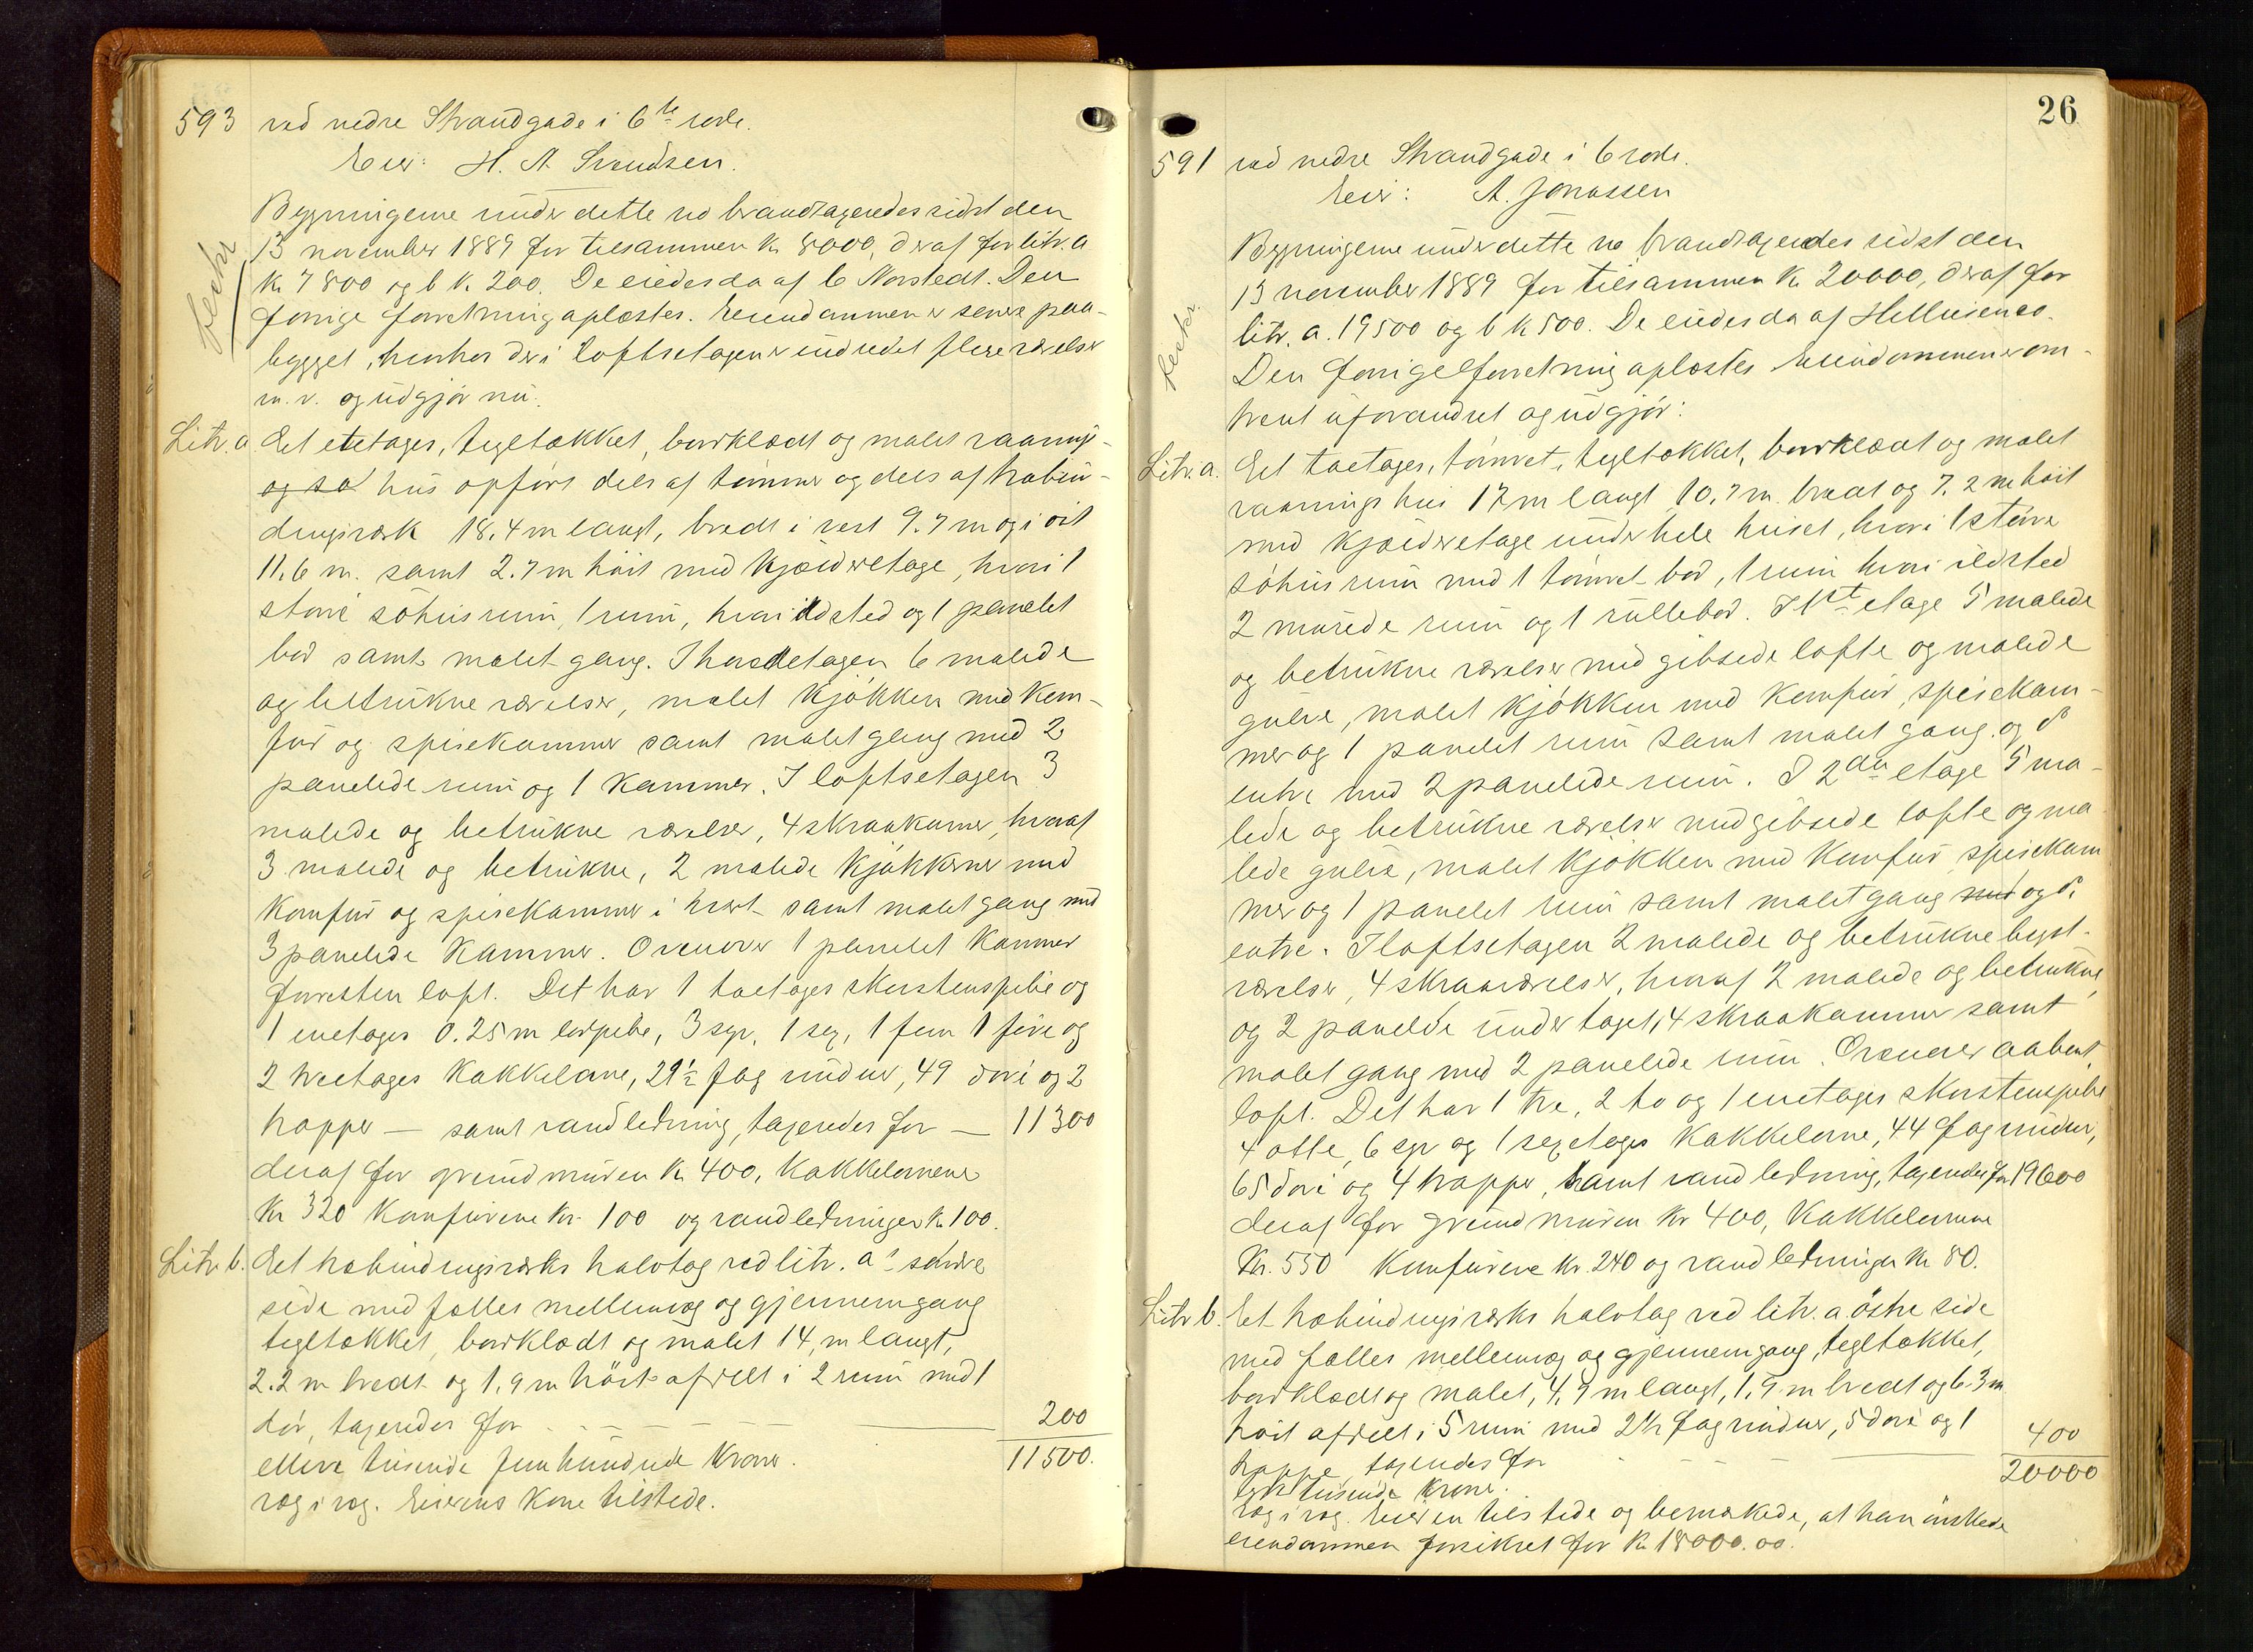 593 ved nedre Strandgade i 6te rode.
Eier: H. A. Svendsen.
Bygningerne under dette no brandtaxeredes sidst den
13 november 1889 for tilsammen kr 8000, deraf for litr. a
kr 7800 og b kr. 200. De eiedes da af C Norstedt. Den
forrige forretning oplæstes. Eiendommen er senere paa-
bygget, hvorhos der i loftsetagen er indredet flere værelser
m. v. og udgjør nu:
Litr. a. Et etetages, tegltækket, bordklædt og malet vaanings-
og sø hus opført dels af tømmer og dels af habin-
dingsværk 18.4 m langt, bredt i vest 9.7 m og i øst
11.6 m. samt 2.7 m høit med kjælderetage, hvori 1
større søhusrum, 1 rum, hvori ildsted og 1 panelet
bod samt malet gang. I hovedetagen 6 malede
og betrukne værelser, malet kjøkken med kom-
fur og spisekammer samt malet gang med 2
panelede rum og 1 kammer. I loftsetagen 3
malede og betrukne værelser, 4 skraakamre, hvoraf
3 malede og betrukne, 2 malede kjøkkener med
komfur og spisekammer i hvert samt malet gang med
3 panelede kammer. Ovenover 1 panelet kammer
forresten loft. Det har 1 toetages skorstenspibe og
1 enetages 0.25 m lerpibe, 3 syv, 1 sex, 1 fem 1 fire og
2 treetages kakkelovne, 29½ fag vinduer, 49 døre og 2
trapper — samt vandledning, taxeredes for — 11300
deraf for grundmuren kr 400, kakkelovnene
kr 320 komfurene kr. 100 og vandledningen kr 100.
Litr. b. Et habindingsværks halvtag ved litr. a's søndre
side med fælles mellemvæg og gjennemgang
tegltækket, bordklædt og malet 14, m langt,
2.2 m bredt og 1.9 m høit afdelt i 2 rum med 1
dør, taxeredes for — 200
elleve tusinde fem hundrede kroner. 11500.
væg i væg. Eierens kone tilstede.
26
591 ved nedre Strandgade i 6 rode.
Eier: A. Jonassen
Bygningerne under dette no brandtaxeredes sidst den
13 november 1889 for tilsammen kr 20000, deraf for
litr. a. 19500 og b kr 500. De eiedes da af Helliesen co.
Den forrige forretning oplæstes Eiendommen er om-
trent uforandret og udgjør:
Litr. a. Et toetages, tømret, tegltækket, bordklædt og malet
vaaningshus 17 m langt 10.7 m. bredt og 7.2 m høit
med kjælderetage under hele huset, hvori 1 større
søhusrum med 1 tømret bod, 1 rum hvori ildsted
2 murede rum og 1 rullebod. I 1st etage 5 malede
og betrukne værelser med gibsede lofte og malede
gulve, malet kjøkken med komfur, spisekam-
mer og 1 panelet rum samt malet gang og do
entre med 2 panelede rum. I 2den etage 5 ma-
lede og betrukne værelser med gibsede lofte og ma-
lede gulve, malet kjøkken med komfur spisekam
mer og 1 panelet rum samt malet gang med og do
entre. I loftsetagen 2 malede og betrukne kvist-
værelser, 4 skraaværelser, hvoraf 2 malede og betrukne,
og 2 panelede under taget, 4 skraakammer samt
malet gang med 2 panelede rum. Ovenover aabent
loft. Det har 1 tre, 2 to og 1 enetages skorstenspibe
4 otte, 6 syv og 1 sexetages kakkelovne, 44 fag vinduer,
65 døre og 4 trapper, samt vandledning, taxeredes for 19600
deraf for grundmuren kr 400, kakkelovnene
kr. 550 komfurene kr. 240 og vandledningen kr 80.
Litr b. Et habindingsværks halvtag ved litr. a østre side
med fælles mellemvæg og gjennemgang, tegltækket,
bordklædt og malet, 4,9 m langt, 1,9 m bredt og 6.3 m
høit afdelt i 5 rum med 2½ fag vinduer, 5 døre og 1
trappe, taxeredes for — 400
tyve tusinde kroner. 20000
væg i væg. Eieren tilstede og bemærkede, at han ønskede
eiendommen forsikret for kr 18000.00.